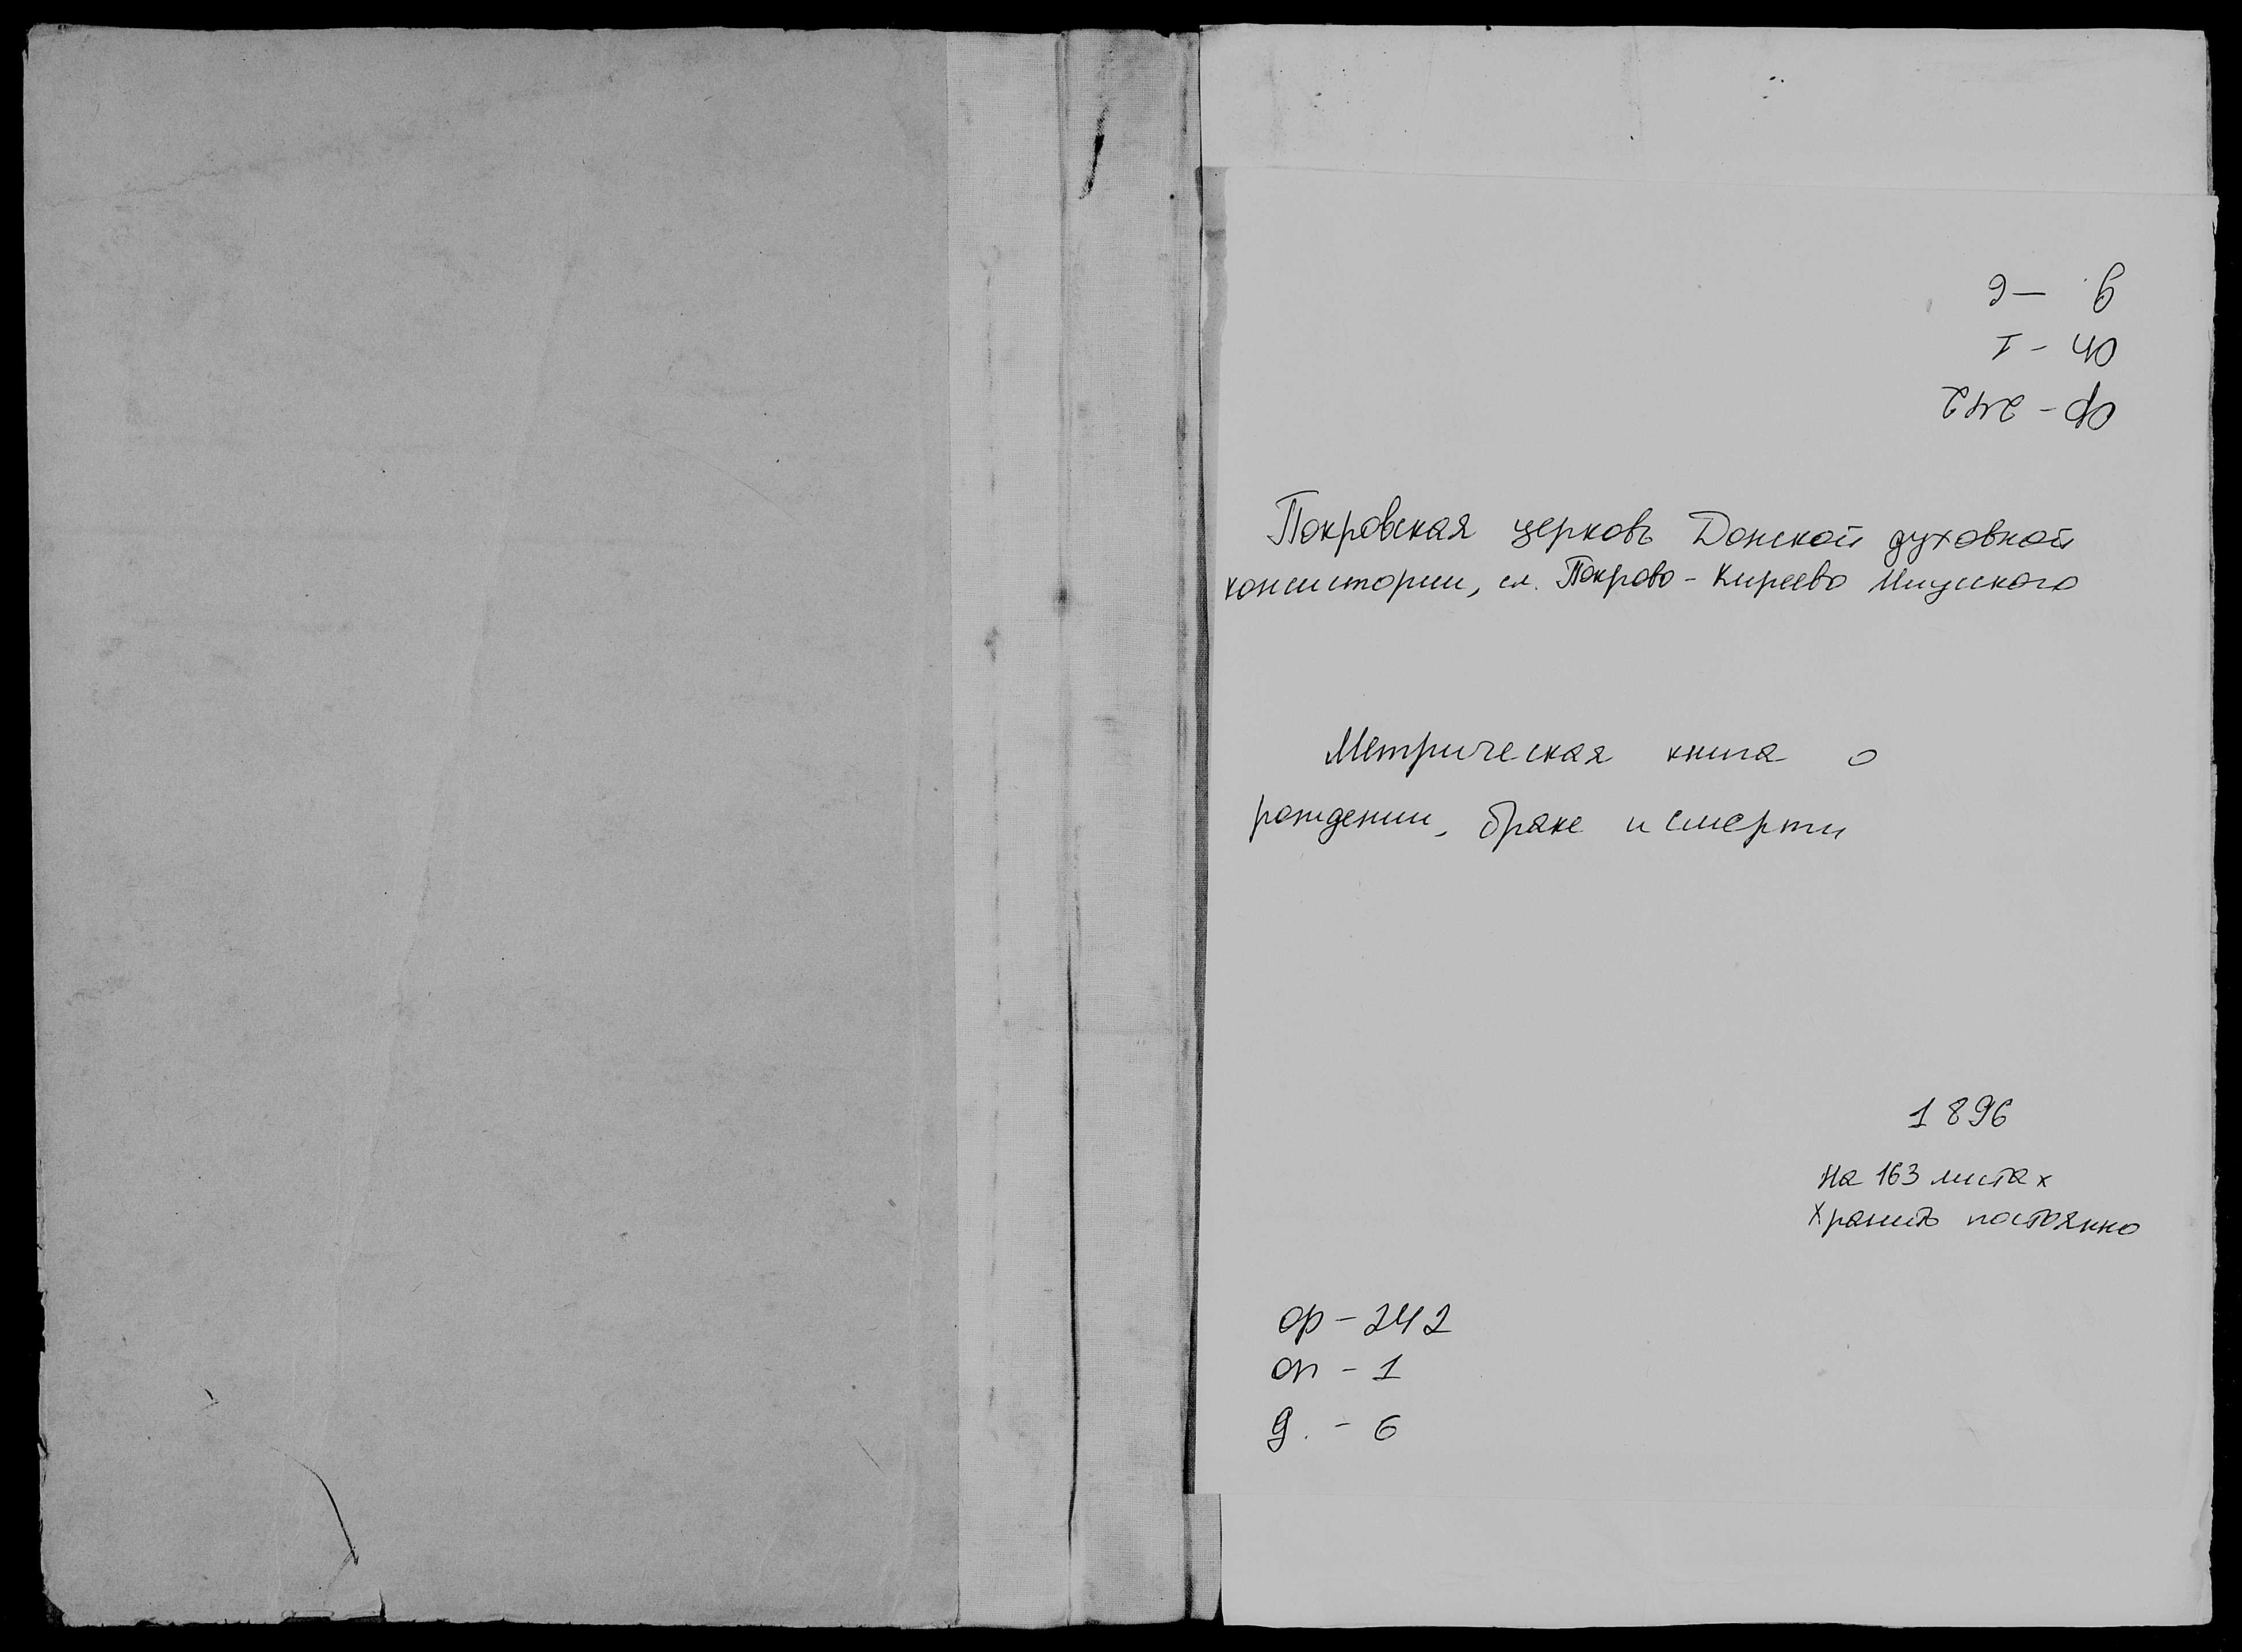 ф - 242
оп - 1
д - 6
Покровская церковь Донской духовной
консистории, сл. Покрово-Киреево Миусского
Метрическая книга о
рождении, браке и смерти
1896
На 163 листах
Хранить постоянно
ф - 242
оп - 1
д. - 6